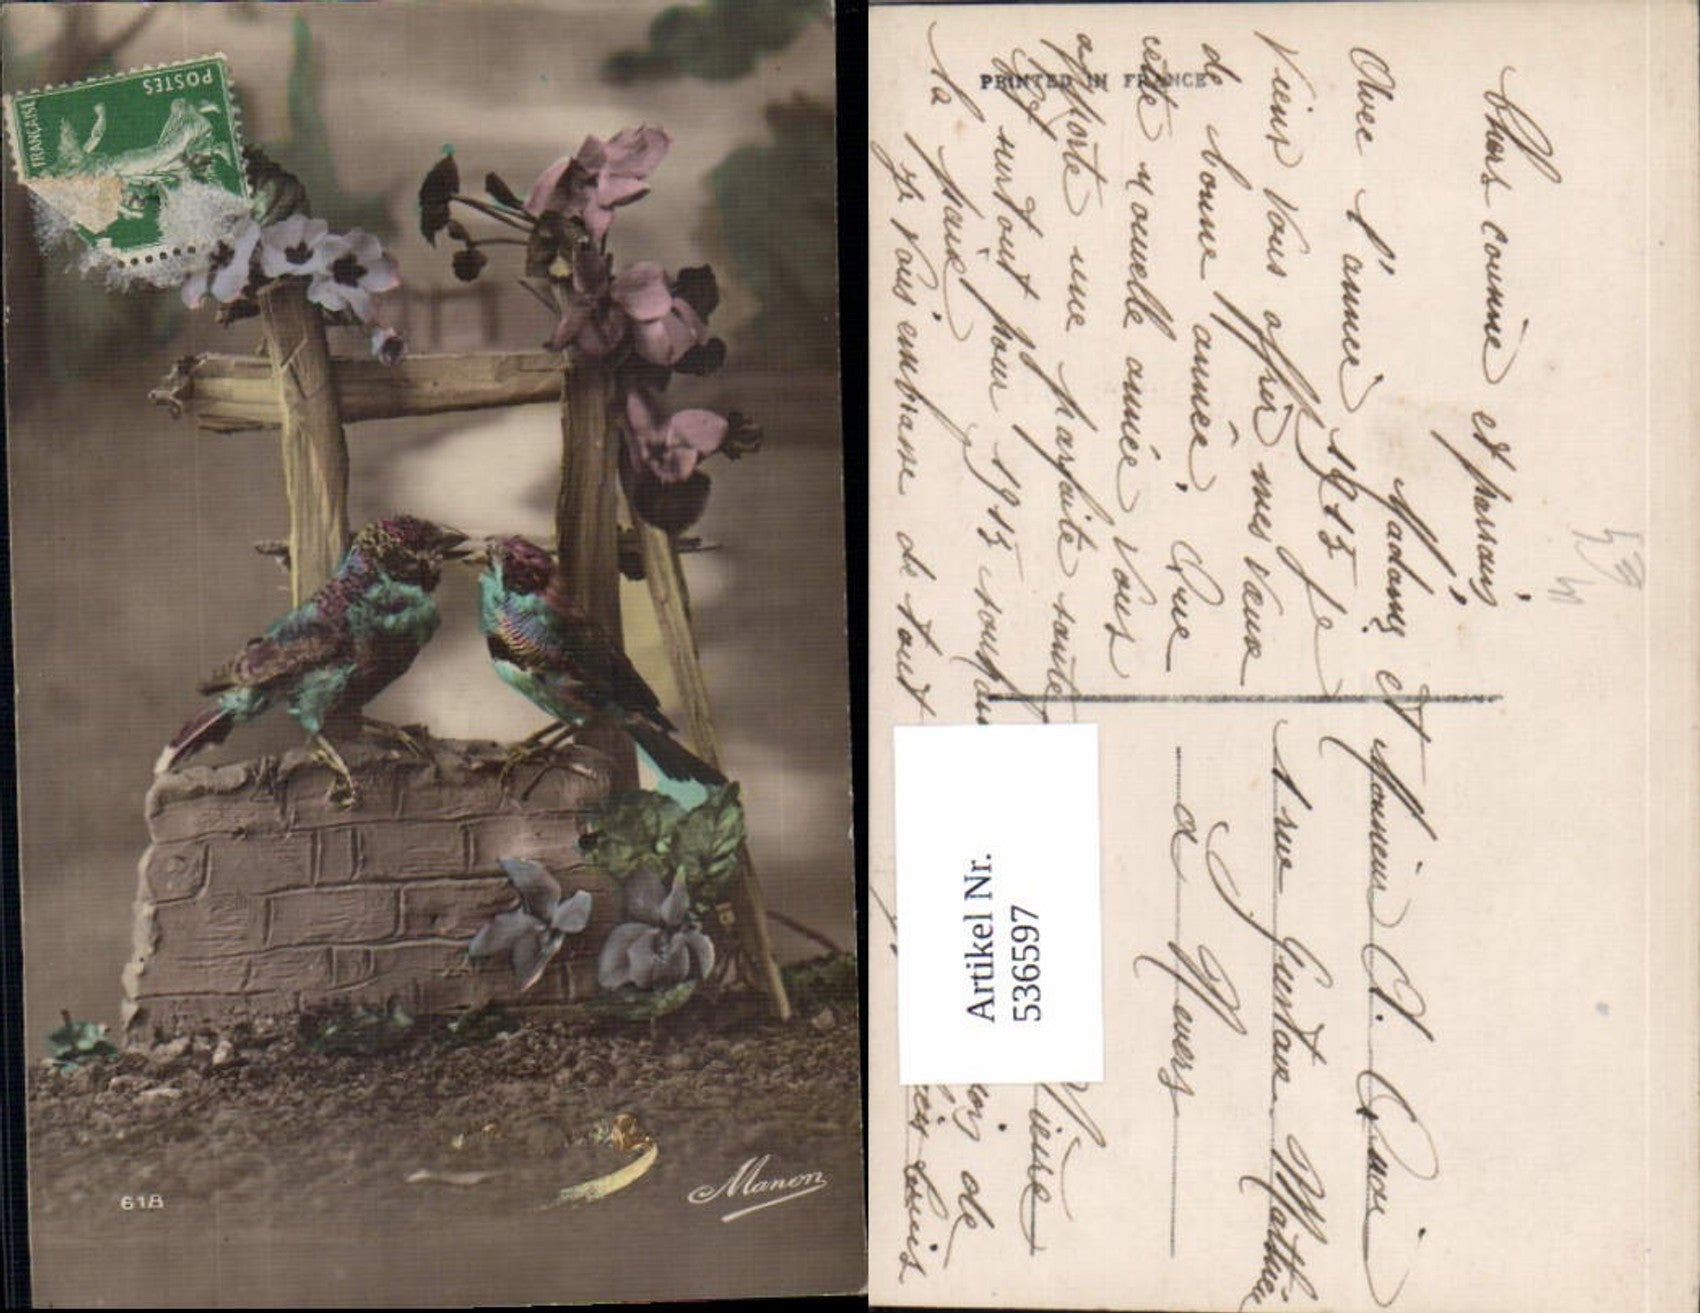 POSTES
FRANÇAISE
618
Manon
PRINTED IN FRANCE
Chers cousine et parrain,
Avec l'année 1915 je
viens vous offrir mes vœux
de bonne année, Que
cette nouvelle année vous
apporte une parfaite santé
et surtout pour 1915
la paix
je vous embrasse de tout
Louis
Madame et Monsieur A.
1 rue Gustave Mathieu
à Nevers
Nièvre
Artikel Nr.
5365597